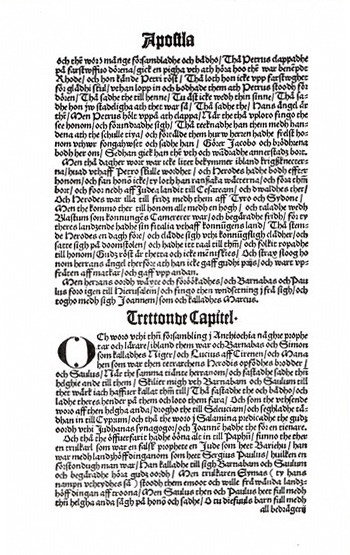 Apostla
och thẽ woro mãnge försambladhe och bådho / Thå Petrus clappadhe
på farstwffwo dörena / gick en pigha vth ath höra hoo thẽ war benẽpd
Rhode / och hon kände Petri röst / Thå loth hon icke vpp farstwghet
för glädhi skul / vthan lopp in och bodhade them ath Petrus stoodh för
dören / Thå sadhe the till henne / Tu äst icke wedh thin sinne / Thå sa-
dhe hon jw stadeligha ath thet war så / Thå sadhe the / Hans ängel är
thẽ / Men Petrus hölt vppå ath clappa / När the thå vploto fingo the
see honom / och forundradhe sigh / Thå teeknadhe han them medh han-
dena ath the schulle tiya / och förtälde them hurw herren hadhe fördt ho-
nom vthwr fongahwset och sadhe han / Görer Jacobo och brödhrena
bodh her om / Sedhan gick han thẽ vth och wādradhe annerstadz bort.
Men thå dagher wordt war icke litet bekymmer ibland krigsknecter-
na / hwadt vthaff Petro skulle wordhet / och Herodes hadhe bodh effter
honom / och fan honõ icke / ty loth han ransaka wacterna / och foor sẽdhan
bort / och foor nedh aff Judea landet till Cesaream / och dwaldhes ther /
Och Herodes war illa till fridz medh them aff Tyro och Sydone /
Men the kommo ther till honom alle medh en hogh / och taladhe wedh
Blastum som konungẽs Camererer war / och begäradhe fridh / för ty
theres landzende hadhe sin fitalia vthaff konungens land / Thå stem-
de Herodes en dagh före / och clädde sigh vthi konungsligh clädher / och
satte sigh på doomstolen / och hadhe itt taal till thẽ / och folkit ropadhe
till honom / Gudz röst är thetta och icke mẽniskes / Och strax sloog ho-
nom herrans ängel ther före / ath han icke gaff gudhi prijs / och wart vp-
fräten aff matkar / och gaff vpp andan.
Men herrans oordh wẽxte och förökadhes / och Barnabas och Pau
lus foro igen till Jerusalem / och fingo then vndsetning ifrå sigh / och
togho medh sigh Joannem / som och kalladhes Marcus.
Trettonde Capitel.
OCh woro vthi thẽ församling j Anthiochia näghre prophe
tar och lärare / ibland them war och Barnabas och Simon
som kalladhes Niger / och Lucius aff Cirenen / och Mana
hen som war then tetrarchens Herodis opfödhes brodher /
och Saulus / När the samma tiänte herranom / och fastadhe sadhe thẽ
helghe ande till them / Skilier migh vth Barnabam och Saulum till
thet wärk iach haffuer kallat thẽ till / Thå fastadhe the och bådho / och
ladhe theres hender på them och loto them fara / Och som the vthsende
woro aff then helga anda / droghe the till Seleuciam / och seghladhe tä-
dhan in till Cyprum / och thå the woro j Salamina predicadhe the gudz
oordh vthi Judhanas synagogor / och Joannẽ hadhe the för en tienare.
Och thå the öffwerfarit hadhe öena alt in till Paphũ / funno the ther
en trulkarl som war en falsk prophete en Jude som heet Bariehu / han
war medh landzhöffdinganom som heet Sergius Paulus / hwilken en
förstondugh man war / Han kalladhe till sigh Barnabam och Saulum
och begäradhe höra gudz oordh / Men trulkaren Eymas (ty hans
nampn vtheydhes så) stoodh them emoot och wille frå wända landz-
höffdingan aff troona / Men Saulus then och Paulus heet full medh
thẽ helgha anda sågh på honõ och sadhe / O tu dieffuuls barn full medh
all bedrägerij